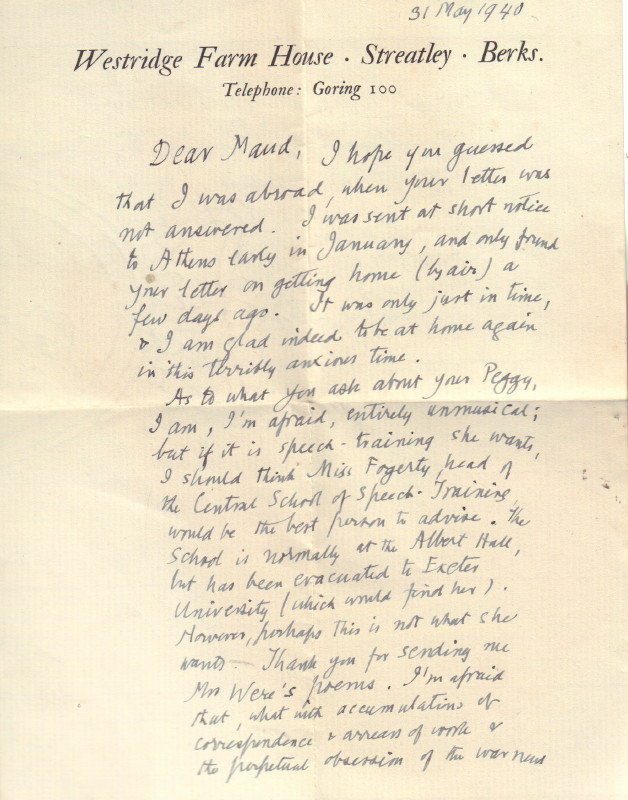 31 May 1940
Westridge Farm House · Streatley · Berks.
Telephone: Goring 100
Dear Maud, I hope you guessed
that I was abroad, when your letter was
not answered. I was sent at short notice
to Athens early in January, and only found
your letter on getting home (by air) a
few days ago. It was only just in time,
& I am glad indeed to be at home again
in this terribly anxious time.
As to what you ask about your Peggy,
I am, I'm afraid, entirely unmusical;
but if it is speech-training she wants,
I should think Miss Fogerty, head of
the Central School of Speech-Training,
would be the best person to advise. The
School is normally at the Albert Hall,
but has been evacuated to Exeter
University (which would find her).
However, perhaps this is not what she
wants. Thank you for sending me
Mrs Were's poems. I'm afraid
that, what with accumulations of
correspondence & arrears of work &
the perpetual obsession of the war news